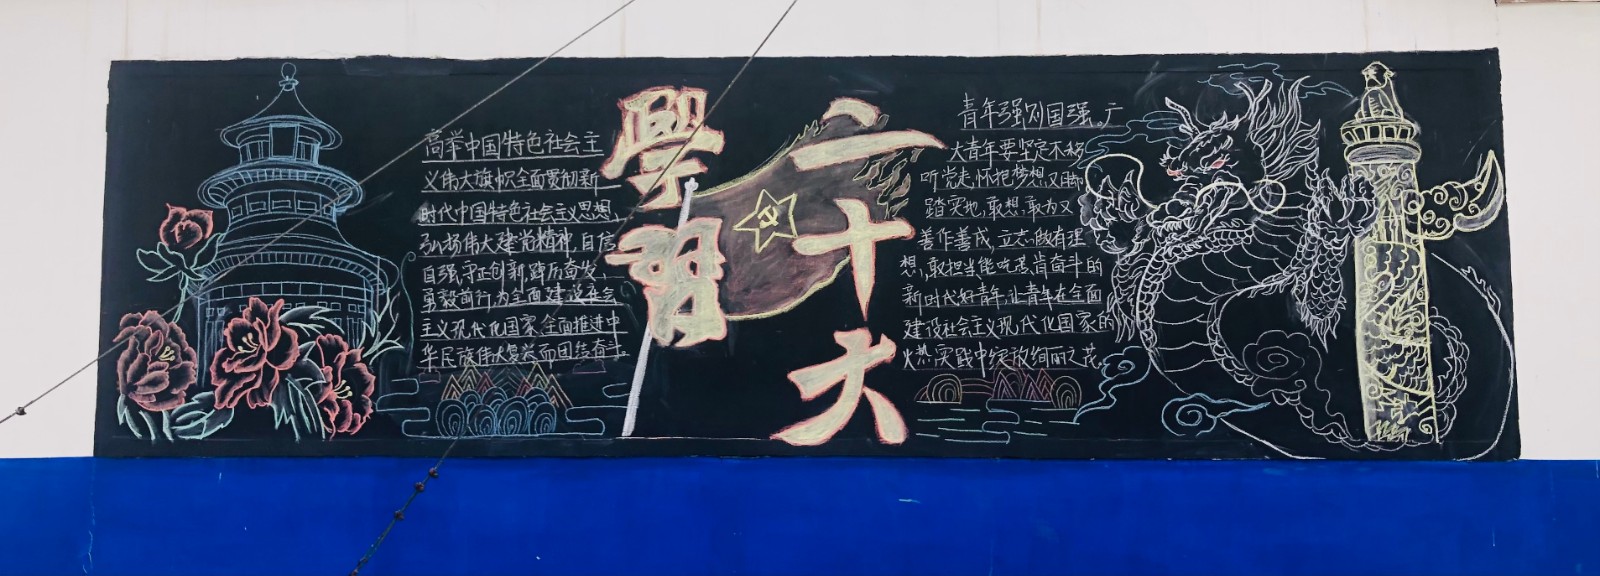 高举中国特色社会主
义伟大旗帜全面贯彻新
时代中国特色社会主义思想，
弘扬伟大建党精神，自信
自强，守正创新，踔厉奋发、
勇毅前行，为全面建设社会
主义现代化国家、全面推进中
华民族伟大复兴而团结奋斗。
學習
二十大
青年强则国强。广
大青年要坚定不移
听党走，怀抱梦想又脚
踏实地，敢想敢为又
善作善成，立志做有理
想，敢担当，能吃苦，肯奋斗的
新时代好青年，让青年在全面
建设社会主义现代化国家的
火热实践中绽放绚丽之花。